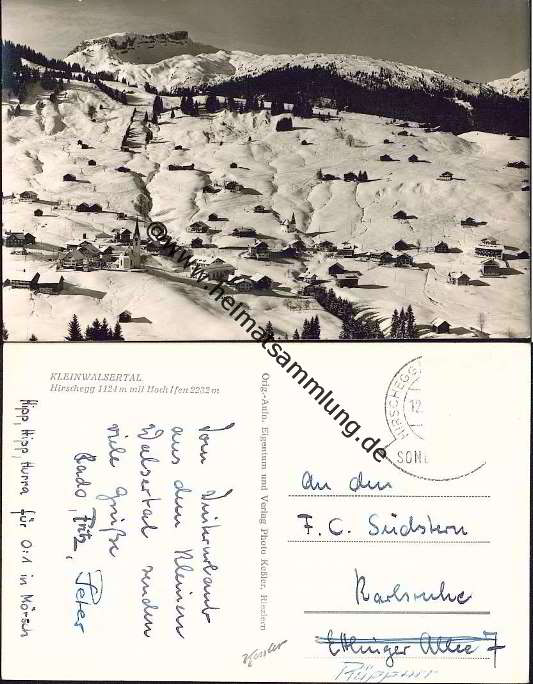 © www.heimatsammlung.de
KLEINWALSERTAL
Hirschegg 1124 m mit Hoch Ifen 2232 m
Vom Winterurlaub
aus dem Kleinen
Walsertal senden
viele Grüße
Bado, Fritz, Peter
Hipp, Hipp, Hurra für 0:1 in Mörsch
Orig.-Aufn. Eigentum und Verlag Photo Keßler, Riezlern
Kessler
HIRSCHEGG
12.
SON
An den
F. C. Südstern
Karlsruhe
Ettlinger Allee 7
Rüppurr